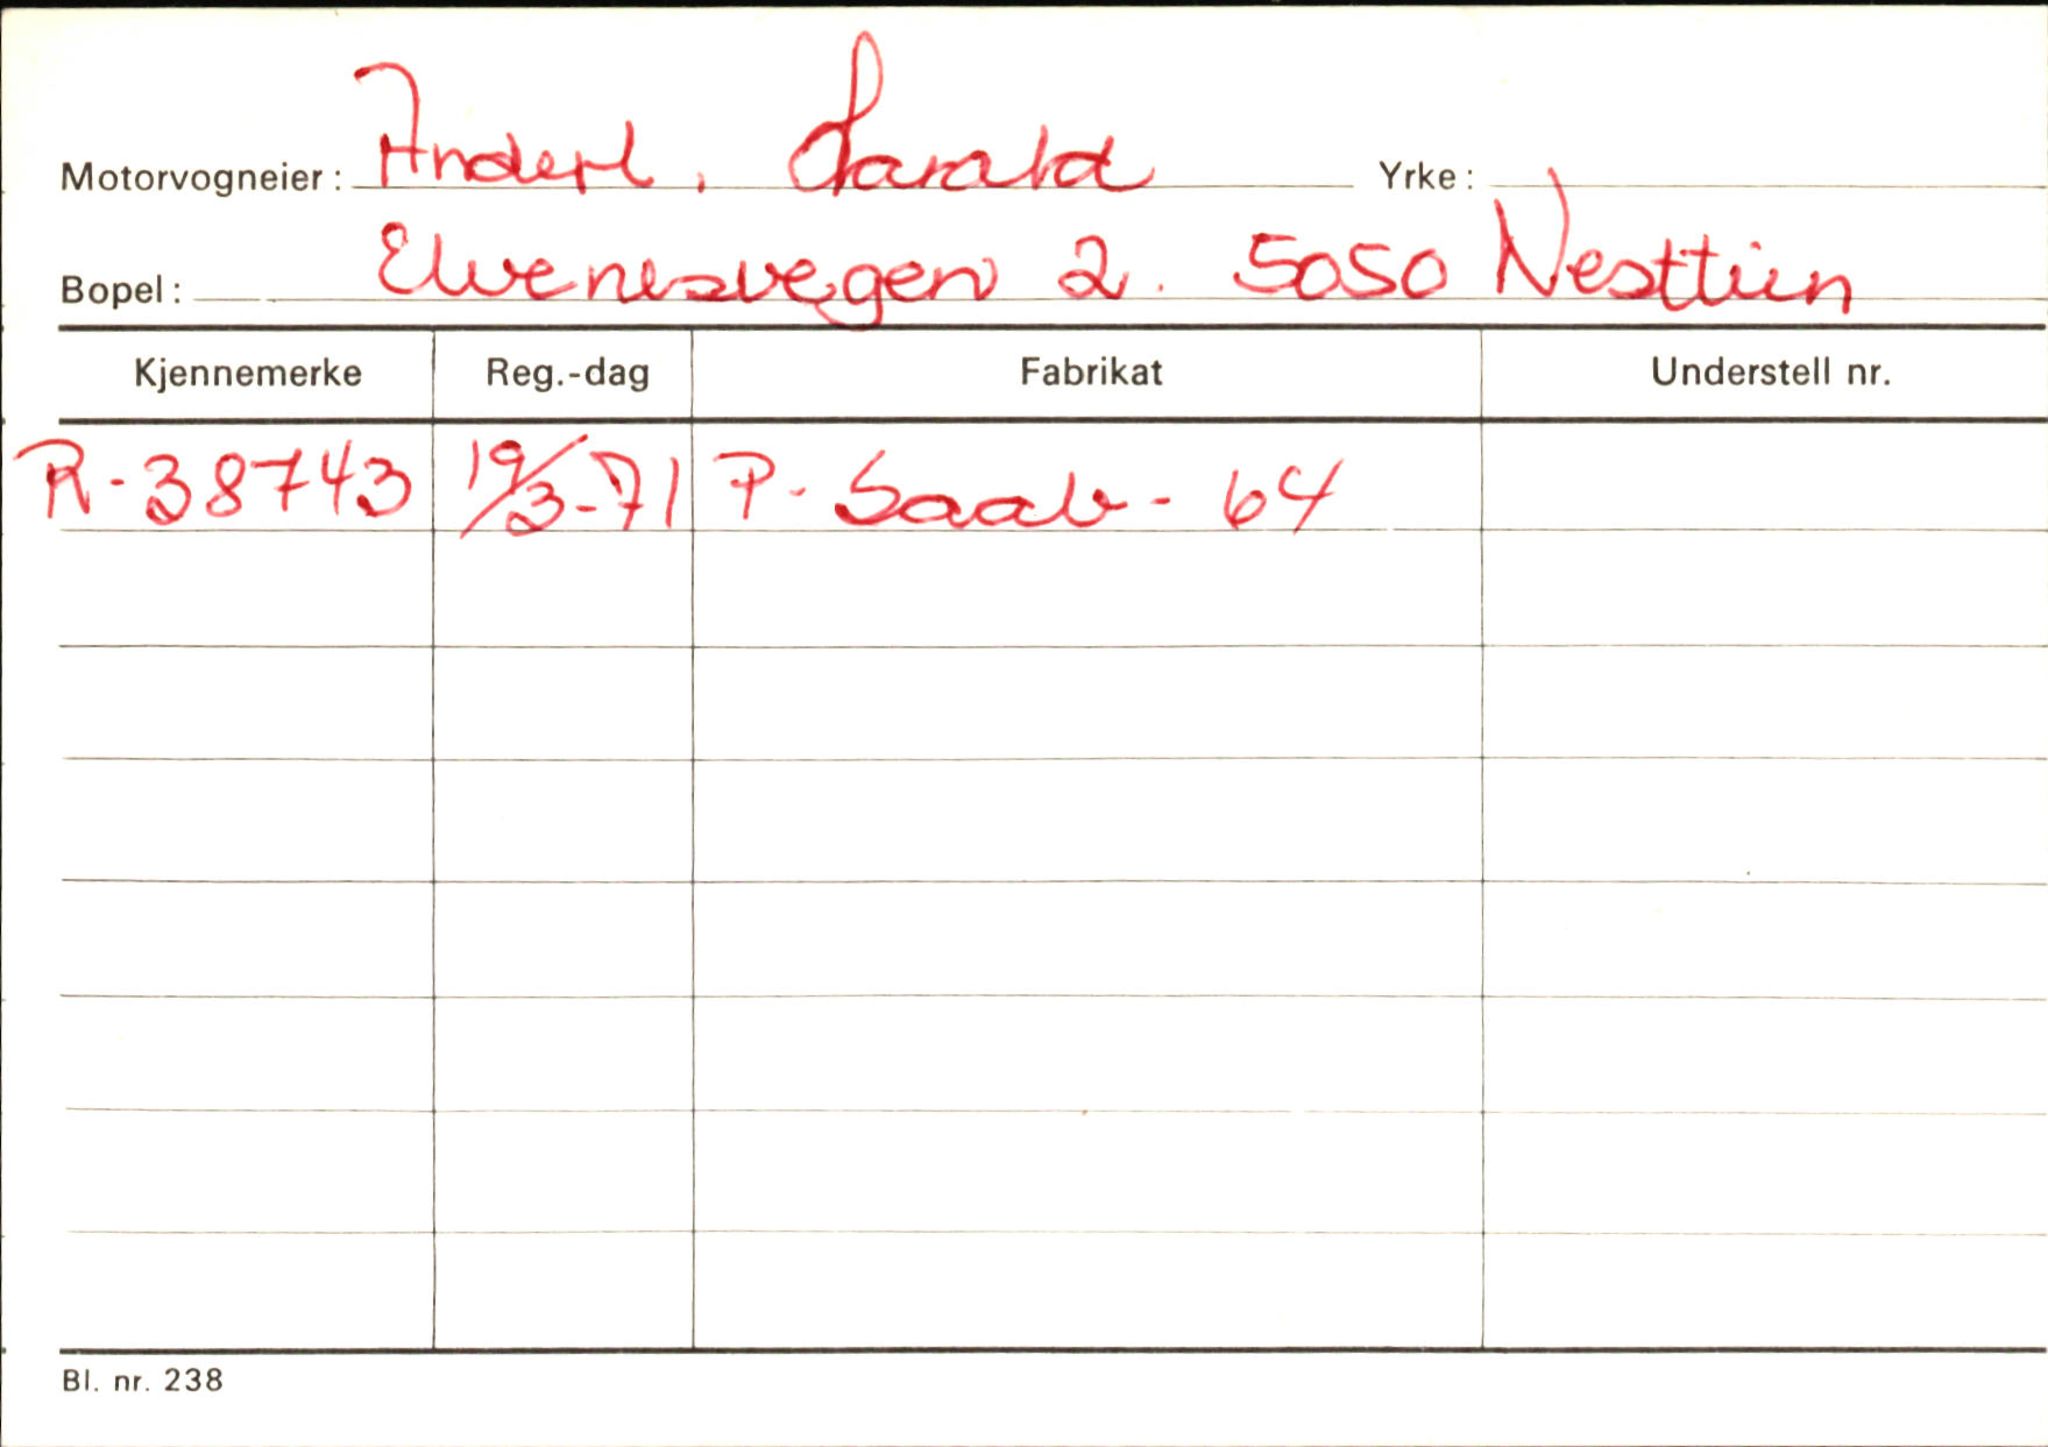 Motorvogneier: Anderl, Harald Yrke:
Bopel: Elvenesvegen 2. 5050 Nesttun
Kjennemerke Reg.-dag Fabrikat Understell nr.
R-38743 19/3-71 P- Saab - 64
Bl. nr. 238